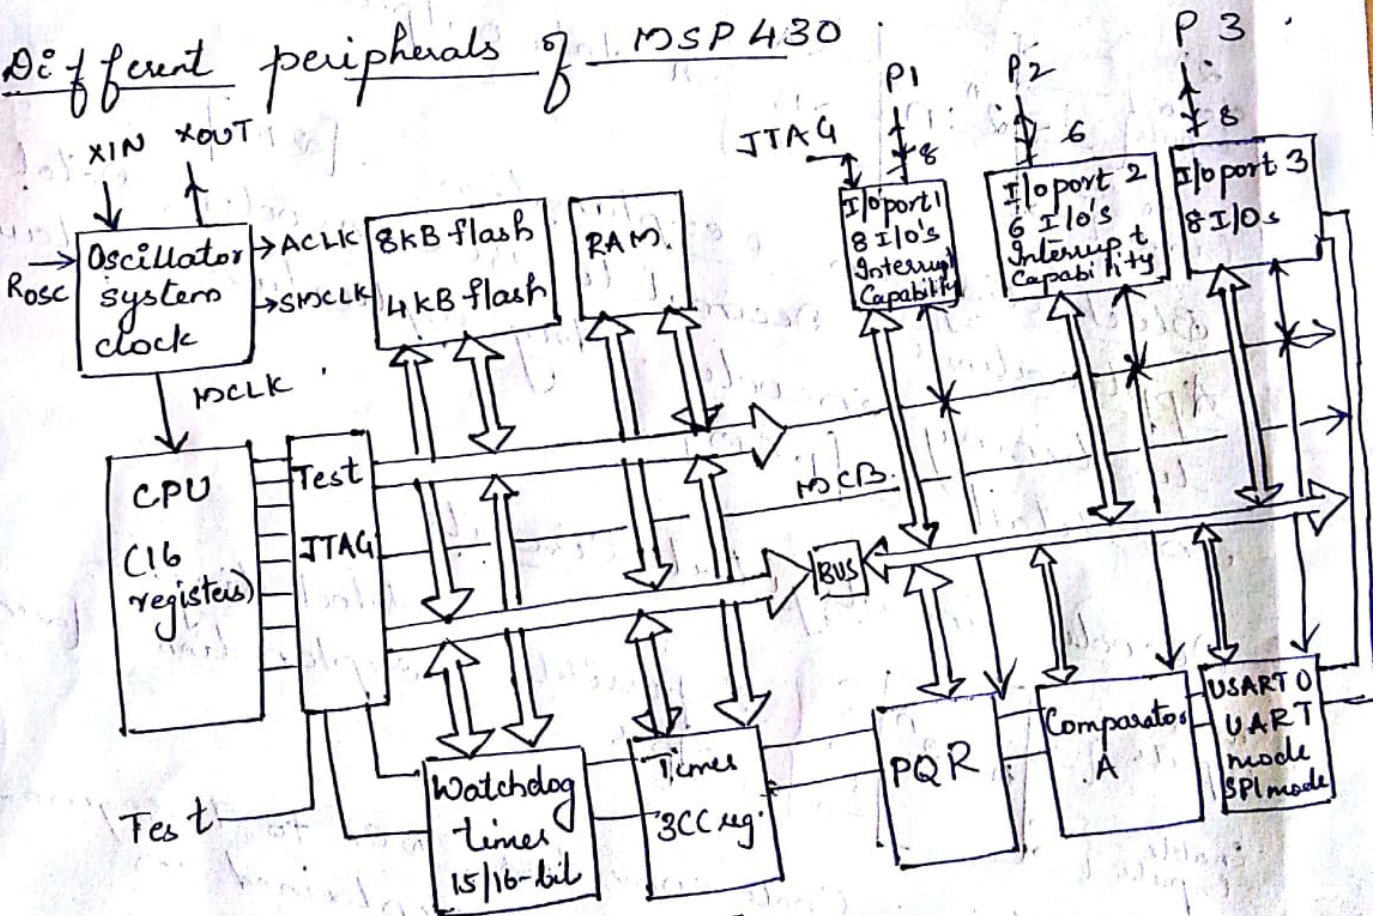 Different peripherals of MSP430
P1
P2
P3
XIN
XOUT
JTAG
8
6
8
Rosc
Oscillator
system
clock
ACLK
SMCLK
MCLK
8kB flash
4kB flash
RAM.
I/o port 1
8 I/o's
Interrupt
Capability
I/o port 2
6 I/o's
Interrupt
Capability
I/o port 3
8 I/Os
CPU
(16
registers)
Test
JTAG
MCB.
BUS
Test
Watchdog
timer
15/16-bit
Timer
3CC reg.
PQR
Comparator
A
USART 0
UART
mode
SPI mode